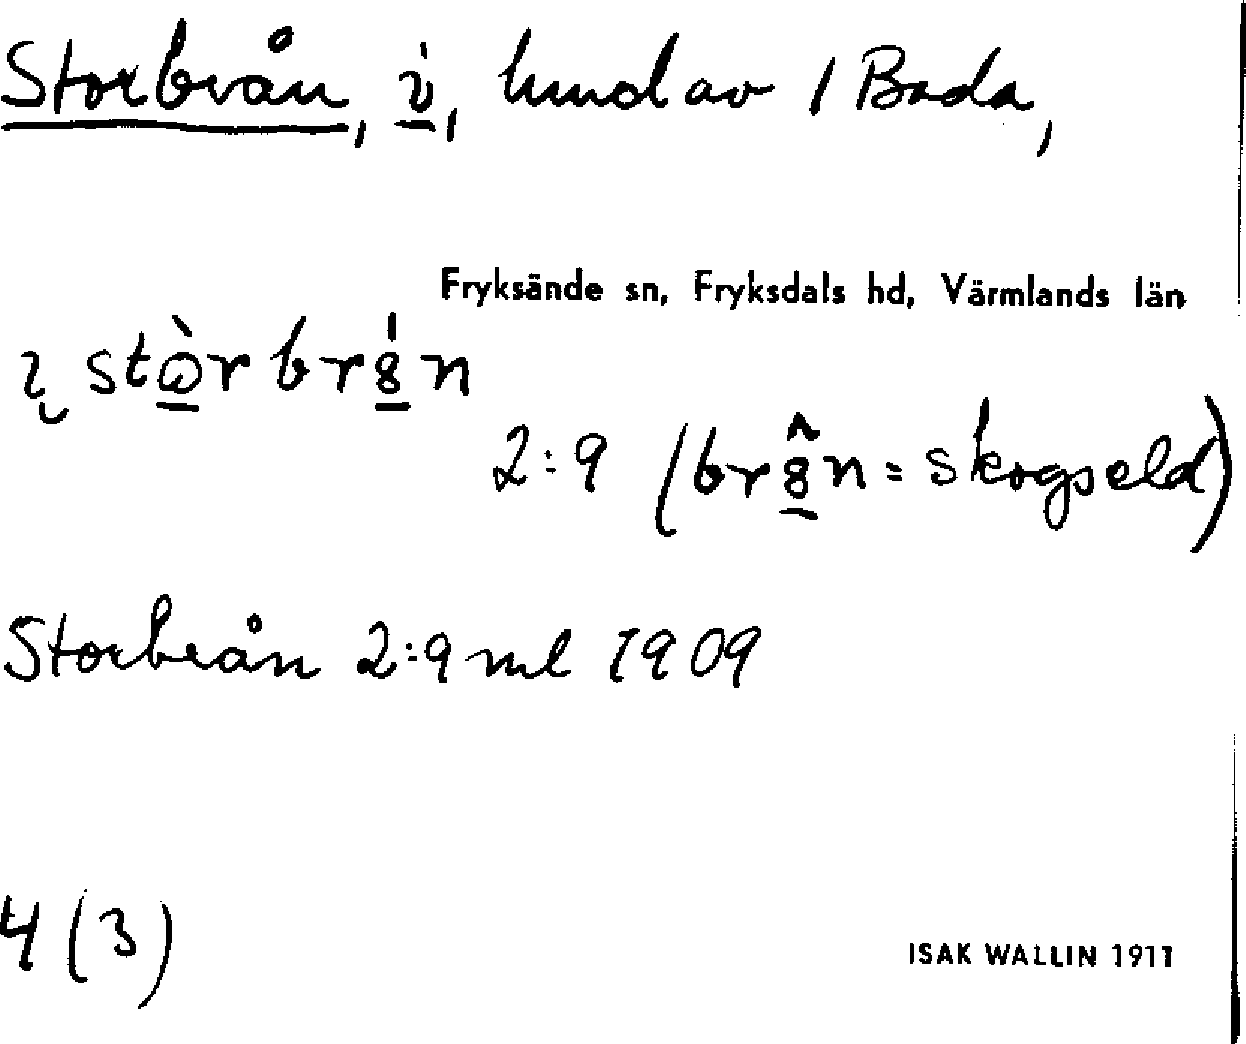 Storbrån, i, hmd av 1 Bada,
Fryksände sn, Fryksdals hd, Värmlands län
2:9 (= skogseld)
Storbrån 2:9 ml 1909
4 (3)
ISAK WALLIN 1911